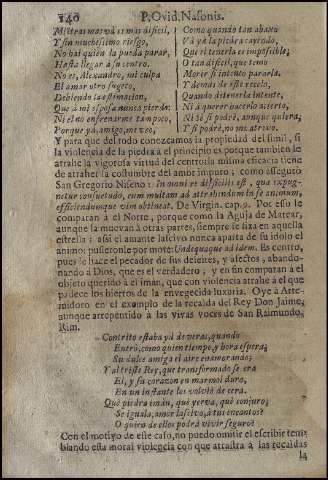 140 P. Ovid. Nasonis.
Mientras mas vá es mas dificil,
Y sin muchissimo riesgo,
No hai quien la pueda parar,
Hasta llegar à su centro.
No es, Alexandro, mi culpa
El amar otro sugeto,
Debiendo la estimacion,
Que à mi esposa nunca pierdo:
Ni el no enfrenarme tampoco,
Porque yà, amigo, me veo,
Como quando tan abaxo
Và yà la piedra cayendo,
Que el tenerla es impossible;
O tan dificil, que temo
Morir si intento pararla.
Y demàs de este rezelo,
Quando detenerla intente,
Ni à querer hacerlo acierto,
Ni sè si podrè, aunque quiera,
Y si podrè, no me atrevo.
Y para que del todo conozcamos la propiedad del simil, si
la violencia de la piedra à el principio es porque tambien le
atrahe la vigorosa virtud del centro; la misma eficacia tiene
de atraher la costumbre del amor impuro; como asseguro
San Gregorio Niseno: In omni re difficilis est, que expug-
netur consuetudo, cum multam ad attrahendum in se animum,
efficiendumque vim obtineat. De Virgin. cap. 9. Por esso le
comparan à el Norte, porque como la Aguja de Marear,
aunque la muevan à otras partes, siempre se fixa en aquella
estrella; assi el amante lascivo nunca aparta de su idolo el
animo; pusieronle por mote: Undequaque ad idem. Es centro,
pues le hace el pecador de sus deleites, y afectos, abando-
nando à Dios, que es el verdadero; y en fin comparan à el
objeto querido à el imàn, que con violencia atrahe à el que
padece los hierros de la envegecida luxuria. Oye à Arte-
midoro en el exemplo de la recaida del Rey Don Jaime,
aunque arrepentido à las vivas voces de San Raimundo,
Rim.
Contrito estaba yà de veras, quando
Entrò, como quien tiempo, y hora espera,
Su dulce amiga el aire enamorando;
Y al triste Rey, que transformado se era
El, y su corazon en marmol duro,
En un instante los volviò de cera.
Què piedra imàn, què yerva, què conjuro,
Se iguala, amor lascivo, à tus incantos?
O quien de ellos podrà vivir seguro?
Con el motivo de este caso, no puedo omitir el escribir tem-
blando esta moral violencia con que arrastra à las recaidas
la